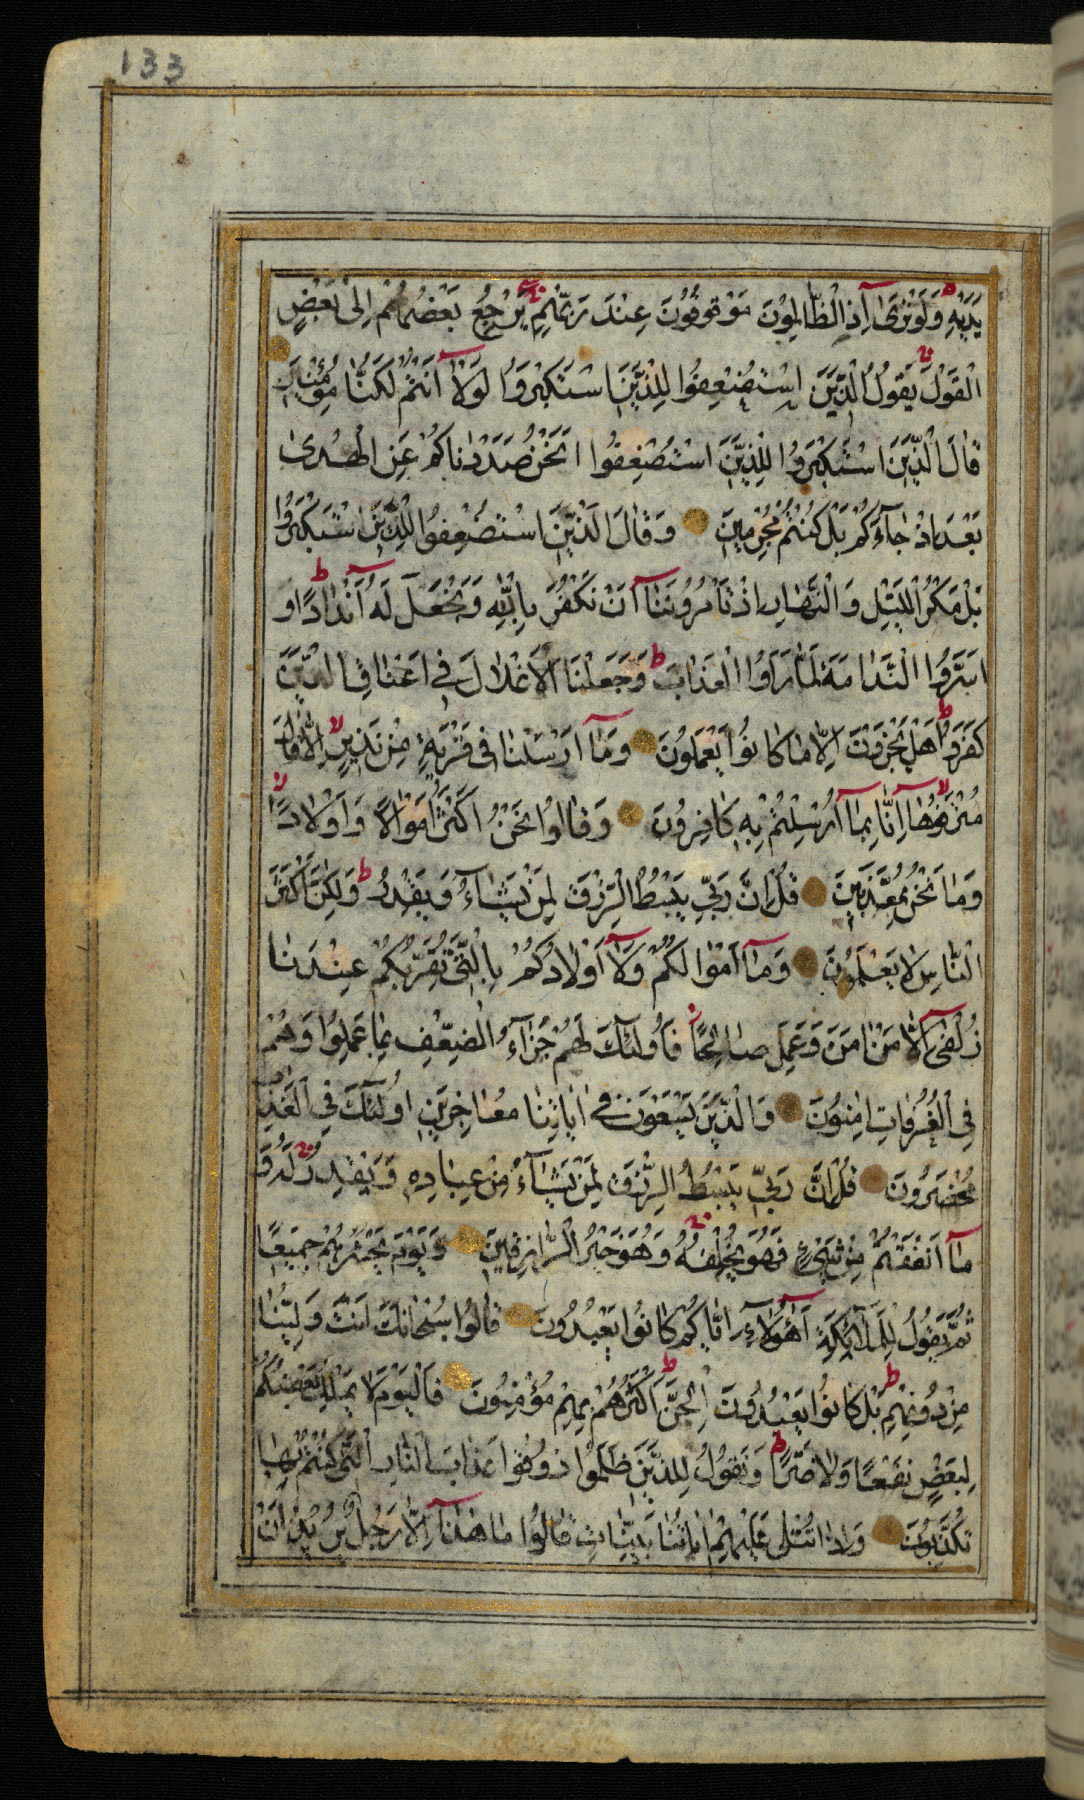 133
يَدَيْهِ وَلَوْ تَرٰى اِذِ الظَّالِمُونَ مَوْقُوفُونَ عِنْدَ رَبِّهِمْ يَرْجِعُ بَعْضُهُمْ اِلٰى بَعْضٍ
الْقَوْلَ يَقُولُ الَّذِينَ اسْتُضْعِفُوا لِلَّذِينَ اسْتَكْبَرُوا لَوْلَا اَنْتُمْ لَكُنَّا مُؤْمِنِينَ
قَالَ الَّذِينَ اسْتَكْبَرُوا لِلَّذِينَ اسْتُضْعِفُوا اَنَحْنُ صَدَدْنَاكُمْ عَنِ الْهُدٰى
بَعْدَ اِذْ جَآءَكُمْ بَلْ كُنْتُمْ مُجْرِمِينَ وَقَالَ الَّذِينَ اسْتُضْعِفُوا لِلَّذِينَ اسْتَكْبَرُوا
بَلْ مَكْرُ اللَّيْلِ وَالنَّهَارِ اِذْ تَأْمُرُونَنَا اَنْ نَكْفُرَ بِاللّٰهِ وَنَجْعَلَ لَهُ اَنْدَادًا وَ
اَسَرُّوا النَّدَامَةَ لَمَّا رَاَوُا الْعَذَابَ وَجَعَلْنَا الْاَغْلَالَ فِي اَعْنَاقِ الَّذِينَ
كَفَرُوا هَلْ يُجْزَوْنَ اِلَّا مَا كَانُوا يَعْمَلُونَ وَمَا اَرْسَلْنَا فِي قَرْيَةٍ مِنْ نَذِيرٍ اِلَّا قَالَ
مُتْرَفُوهَا اِنَّا بِمَا اُرْسِلْتُمْ بِهِ كَافِرُونَ وَقَالُوا نَحْنُ اَكْثَرُ اَمْوَالًا وَاَوْلَادًا
وَمَا نَحْنُ بِمُعَذَّبِينَ قُلْ اِنَّ رَبِّي يَبْسُطُ الرِّزْقَ لِمَنْ يَشَآءُ وَيَقْدِرُ وَلٰكِنَّ اَكْثَرَ
النَّاسِ لَا يَعْلَمُونَ وَمَا اَمْوَالُكُمْ وَلَا اَوْلَادُكُمْ بِالَّتِي تُقَرِّبُكُمْ عِنْدَنَا
زُلْفٰى اِلَّا مَنْ اٰمَنَ وَعَمِلَ صَالِحًا فَاُولٰئِكَ لَهُمْ جَزَآءُ الضِّعْفِ بِمَا عَمِلُوا وَهُمْ
فِي الْغُرُفَاتِ اٰمِنُونَ وَالَّذِينَ يَسْعَوْنَ فِي اٰيَاتِنَا مُعَاجِزِينَ اُولٰئِكَ فِي الْعَذَابِ
مُحْضَرُونَ قُلْ اِنَّ رَبِّي يَبْسُطُ الرِّزْقَ لِمَنْ يَشَآءُ مِنْ عِبَادِهِ وَيَقْدِرُ لَهُ وَ
مَا اَنْفَقْتُمْ مِنْ شَيْءٍ فَهُوَ يُخْلِفُهُ وَهُوَ خَيْرُ الرَّازِقِينَ وَيَوْمَ يَحْشُرُهُمْ جَمِيعًا
ثُمَّ يَقُولُ لِلْمَلٰٓئِكَةِ اَهٰٓؤُلَآءِ اِيَّاكُمْ كَانُوا يَعْبُدُونَ قَالُوا سُبْحَانَكَ اَنْتَ وَلِيُّنَا
مِنْ دُونِهِمْ بَلْ كَانُوا يَعْبُدُونَ الْجِنَّ اَكْثَرُهُمْ بِهِمْ مُؤْمِنُونَ فَالْيَوْمَ لَا يَمْلِكُ بَعْضُكُمْ
لِبَعْضٍ نَفْعًا وَلَا ضَرًّا وَنَقُولُ لِلَّذِينَ ظَلَمُوا ذُوقُوا عَذَابَ النَّارِ الَّتِي كُنْتُمْ بِهَا
تُكَذِّبُونَ وَاِذَا تُتْلٰى عَلَيْهِمْ اٰيَاتُنَا بَيِّنَاتٍ قَالُوا مَا هٰذَا اِلَّا رَجُلٌ يُرِيدُ اَنْ